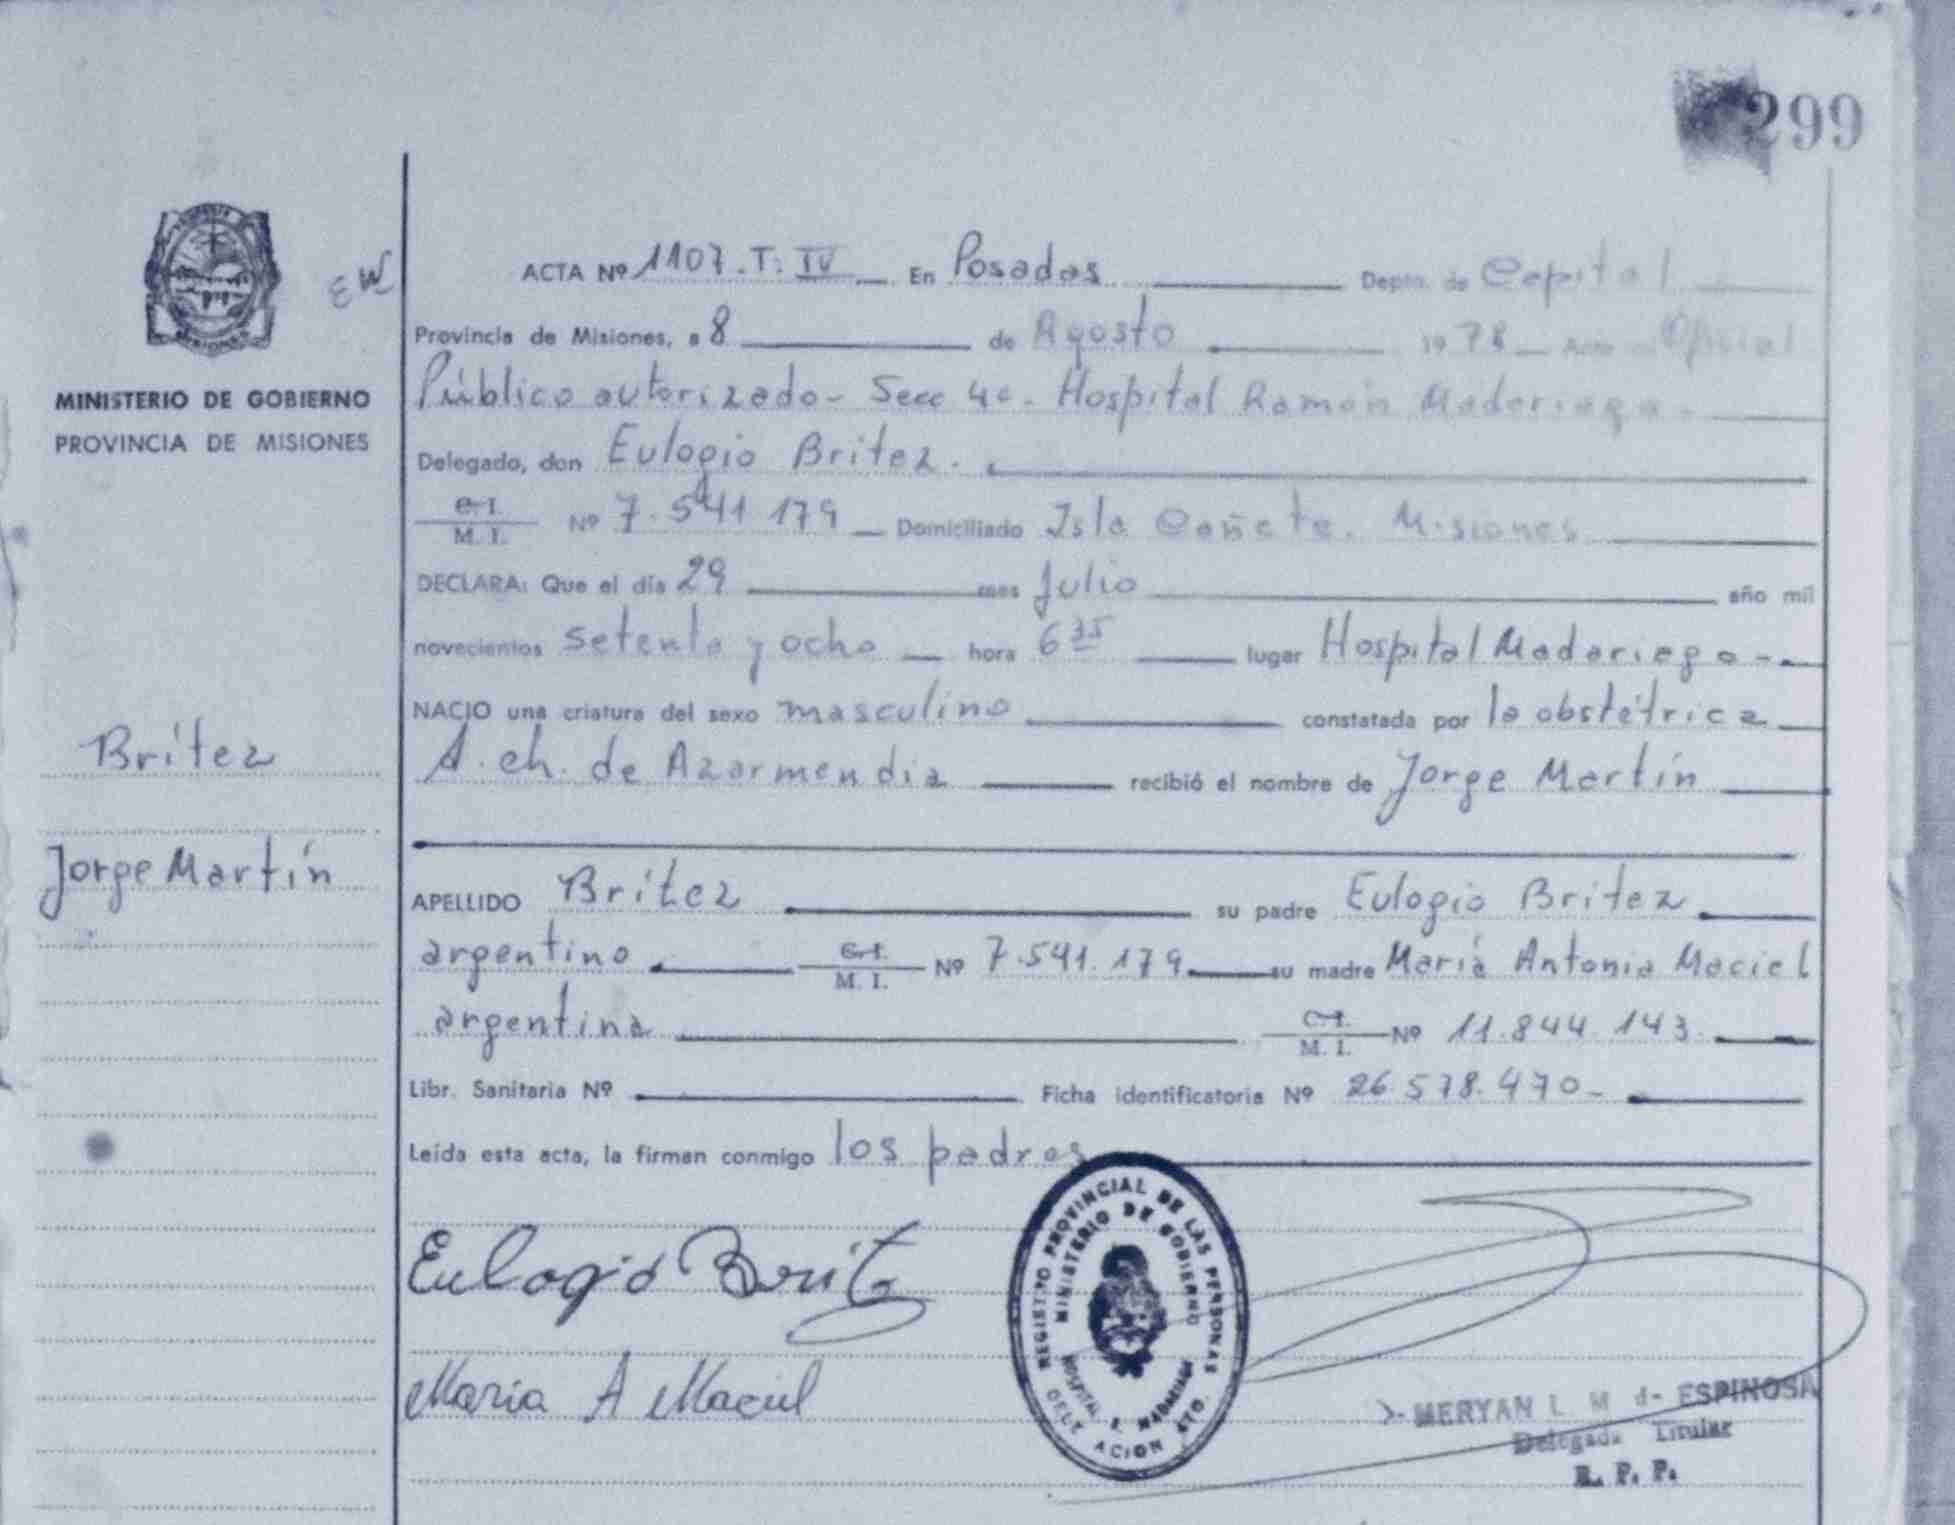 299
EW
ACTA Nº 1107.T. IV En Posadas Depto. de Capital
Provincia de Misiones, a 8 de Agosto 1978 Ante Oficial
MINISTERIO DE GOBIERNO
PROVINCIA DE MISIONES
Público autorizado - Secc 4a. Hospital Ramón Madariaga.
Delegado, don Eulogio Britez.
C.I.
M. I. Nº 7.541.179 Domiciliado Isla Cañete. Misiones
DECLARA: Que el día 29 mes Julio año mil
novecientos setenta y ocho hora 6 35 lugar Hospital Madariaga -
NACIO una criatura del sexo masculino constatada por la obstétrica
A. ch. de Azarmendia recibió el nombre de Jorge Martín
Britez
Jorge Martín
APELLIDO Britez su padre Eulogio Britez
argentino C.I.
M. I. Nº 7.541.179 su madre María Antonia Maciel
argentina C.I.
M. I. Nº 11.844.143
Libr. Sanitaria Nº Ficha identificatoria Nº 26.578.470-
Leída esta acta, la firman conmigo los padres
Eulogio Britez
Maria A Maciel
REGISTRO PROVINCIAL DE LAS PERSONAS
MINISTERIO DE GOBIERNO
HOSPITAL R. MADARIAGA
MERYAN L. M de ESPINOSA
Delegada Titular
R. P. P.